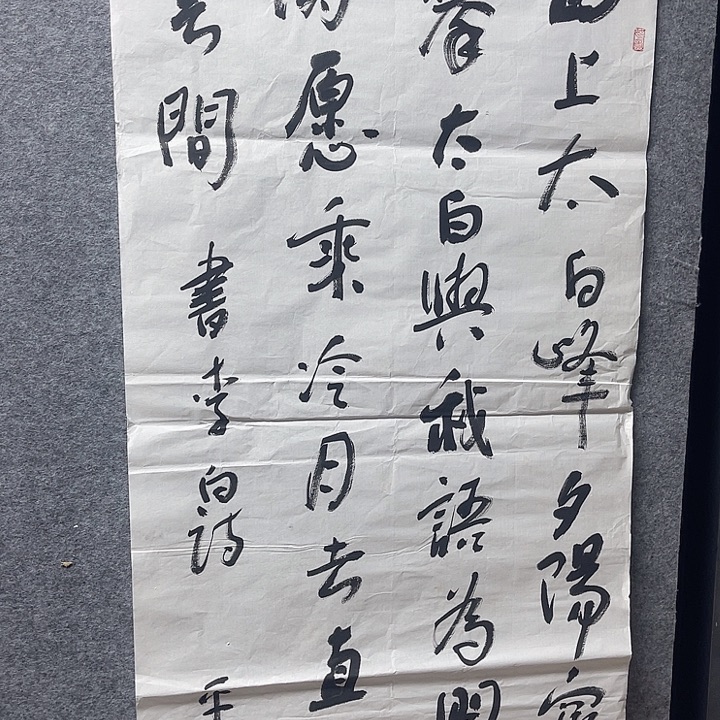 西上太白峰夕陽窮
攀太白與我語為開
愿乘冷月去直
雲間 書李白詩